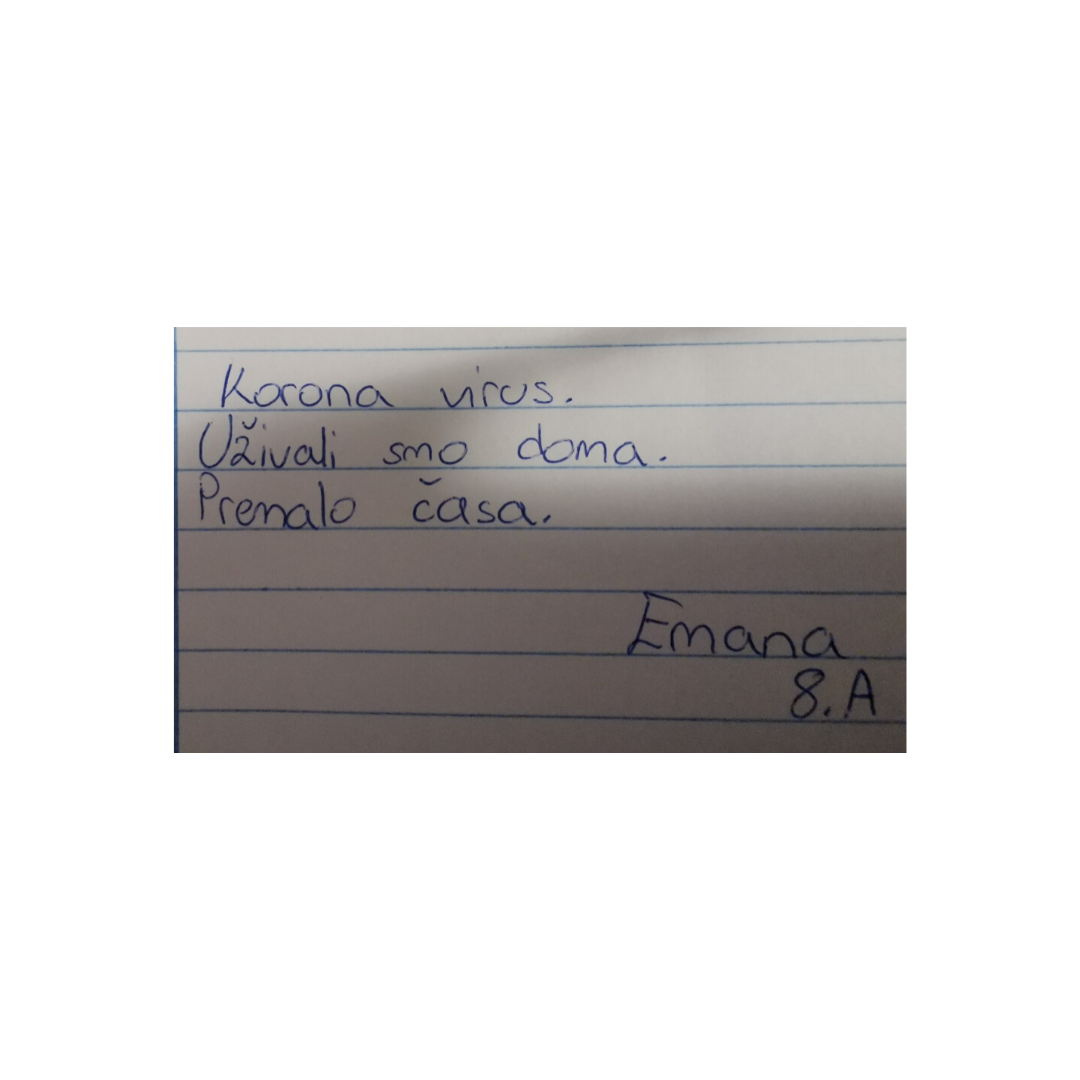 Korona virus.
Uživali smo doma.
Premalo časa.
Emana
8. A